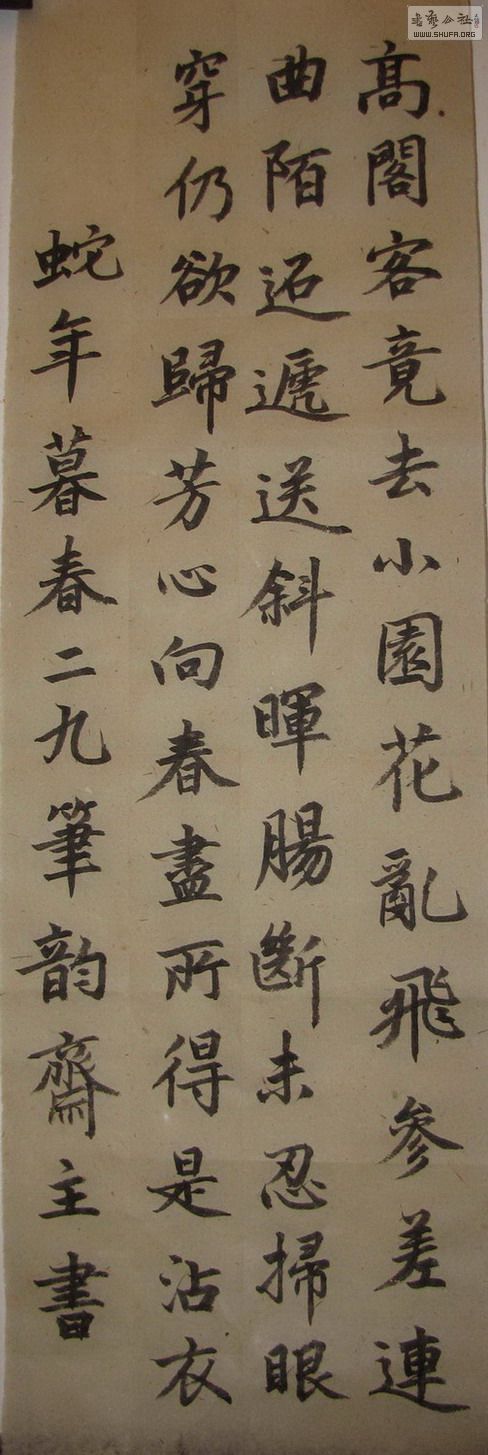 高閣客竟去小園花亂飛參差連
曲陌迢遞送斜暉腸斷未忍掃眼
穿仍欲歸芳心向春盡所得是沾衣
蛇年暮春二九筆韵齋主書
WWW.SHUFA.ORG